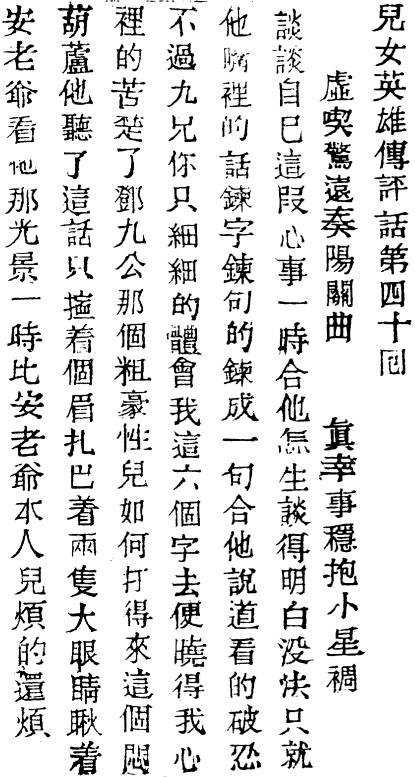 兒女英雄傳評話第四十回
虛喫驚遠奏陽關曲　眞幸事穩抱小星裯
談談自巳這叚心事一時合他怎生談得明白没法只就
他㗳裡的話鍊字鍊句的鍊成一句合他說道看的破忍
不過九兄你只細細的體會我這六個字去便曉得我心
裡的苦楚了鄧九公那個粗豪性兒如何打得來這個悶
葫蘆他聽了這話只擰着個眉扎巴着兩隻大眼睛瞅着
安老爺看他那光景一時比安老爺本人兒煩的還煩